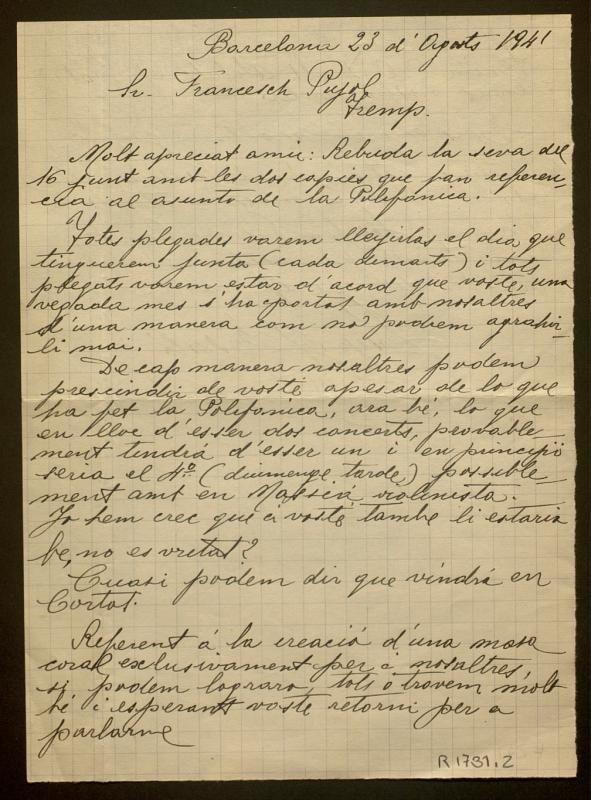 Barcelona 23 d' Agost 1941
Sr. Francesch Pujol
Tremp.
Molt apreciat amic: Rebuda la seva del
16 junt amb les dos copies que fan referen-
cia al asunto de la Polifonica.
Totes plegades varem llegirlas el dia que
tinguerem junta (cada dimarts) i tots
plegats varem estar d'acord que vosté, una
vegada mes s'ha portat amb nosaltres
d'una manera com no podrem agrahir-
li mai.
De cap manera nosaltres podem
prescindir de vosté apesar de lo que
ha fet la Polifonica, ara bé, lo que
en lloc d'esser dos concerts, provable-
ment tindrá d'esser un i en principi
seria el 4º (diumenge tarde) possible-
ment amb en Massia violinista.
Jo hem crec que á vosté tambe li estaria
be, no es vritat?
Cuasi podem dir que vindrá en
Cortot.
Referent á la creació d'una masa
coral exclusivament per á nosaltres,
si podem lograro, tots ó trovem molt
bé i esperant vosté retorni per a
parlarne
R 1731.2